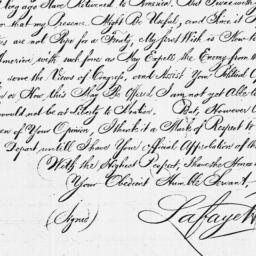 long ago Have Returned to America. But Since
that my Presence Might Be Useful, and Since it
are not Ripe for a Treaty, My first Wish is Now to
America with such force as May Expell the Enemy from
serve the Views of Congress, and Assist Your Political
or How this May Be Effected I am not yet Able
would not be at liberty to Mention. But, However
of Your Opinion, I think it a Mark of Respect to
Depart untill I have Your official Approbation of th
With the Highest Respect, I have the Honor
Your Obedient Humble Servant,
(Signed) Lafayette